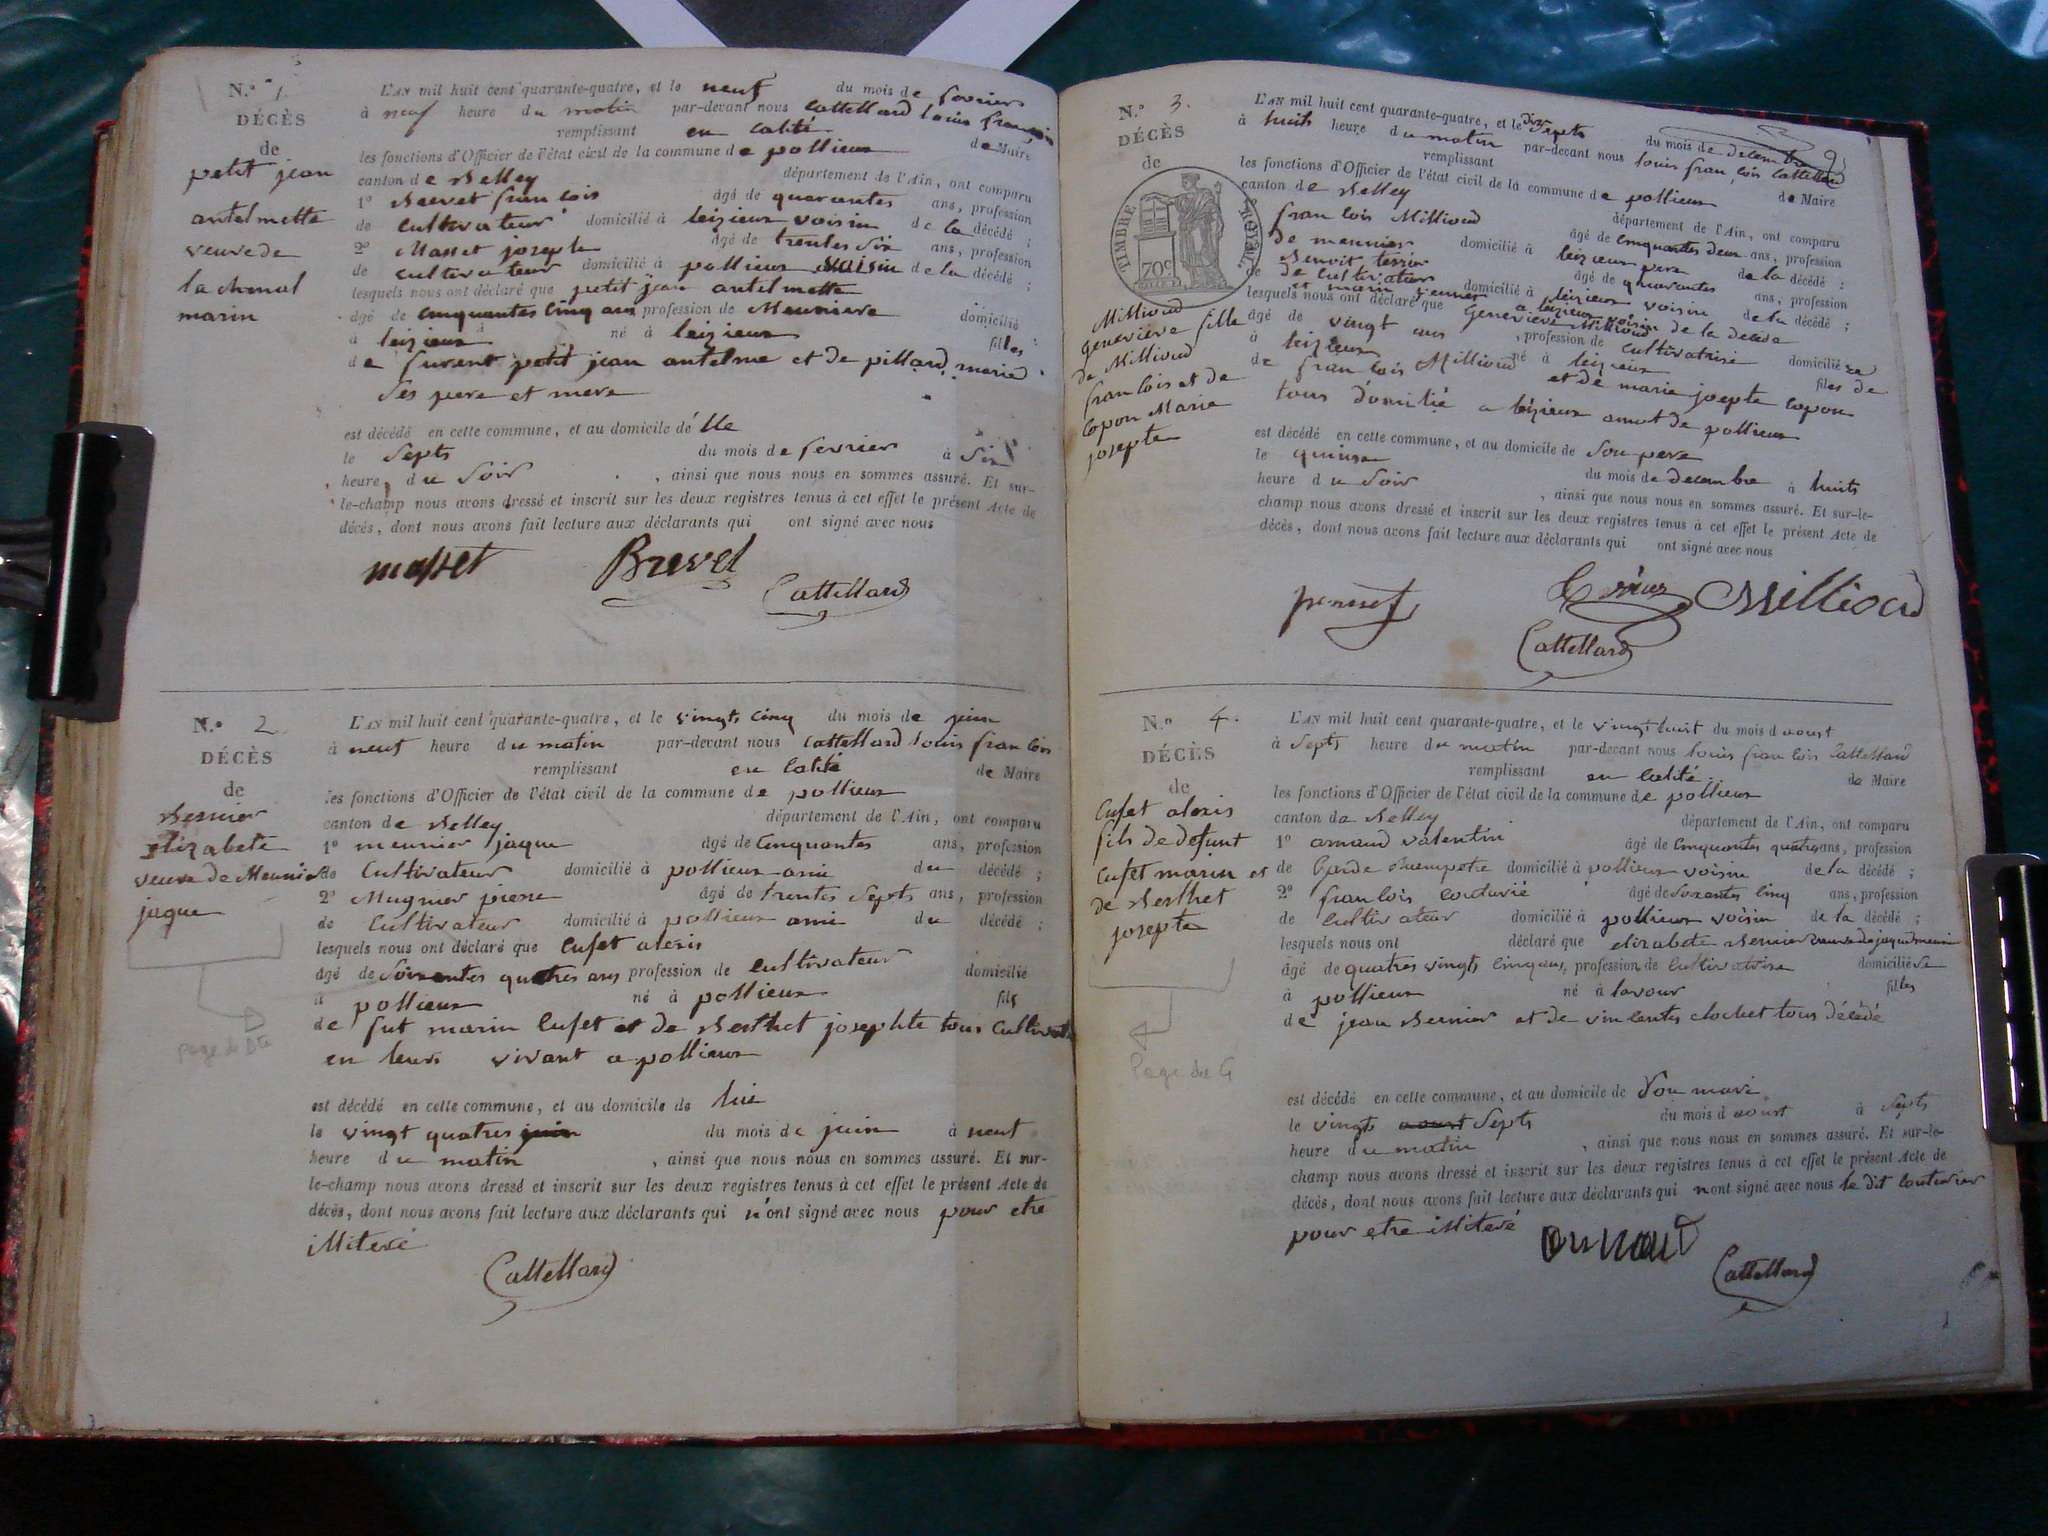 N.o 1.
DÉCÈS
de
petit jean
antelmette
veuve de
la chenal
marin
L'AN mil huit cent quarante-quatre, et le neuf du mois de fevrier
à neuf heure du matin par-devant nous Cattelland louis françois
remplissant en calité de Maire
les fonctions d'Officier de l'état civil de la commune de pollieux
canton de Belley département de l'Ain, ont comparu
1o françois âgé de quarantes ans, profession
de cultivateur domicilié à leizieux voisin de la décédé ;
2o Masset joseph âgé de trentes six ans, profession
de cultivateur domicilié à pollieux voisin de la décédé ;
lesquels nous ont déclaré que petit jean antelmette
âgé de cinquantes cinq ans profession de Meuniere domicilié
à leizieux né à leizieux filles
de furent petit jean antelme et de pillard marie
ses pere et mere
est décédé en cette commune, et au domicile d'elle
le septs du mois de fevrier à six
heure du soir , ainsi que nous nous en sommes assuré. Et sur-
le-champ nous avons dressé et inscrit sur les deux registres tenus à cet effet le présent Acte de
décès, dont nous avons fait lecture aux déclarants qui ont signé avec nous
masset Brevet
Cattelland
N.o 2.
DÉCÈS
de
Bernier
Elizabete
veuve de Meunier
jaque
page de Dte
L'AN mil huit cent quarante-quatre, et le vingts cinq du mois de juin
à neuf heure du matin par-devant nous Cattelland louis françois
remplissant en calité de Maire
les fonctions d'Officier de l'état civil de la commune de pollieux
canton de Belley département de l'Ain, ont comparu
1o meunier jaque âgé de cinquantes ans, profession
de Cultivateur domicilié à pollieux ami du décédé ;
2o Mugnier pierre âgé de trentes septs ans, profession
de Cultivateur domicilié à pollieux ami du décédé ;
lesquels nous ont déclaré que Cufet alexis
âgé de soixantes quatres ans profession de cultivateur domicilié
à pollieux né à pollieux fils
de fut marin Cufet et de Berthet josephte tous Cultivate
en leurs vivant a pollieux
est décédé en cette commune, et au domicile de lui
le vingt quatres juin du mois de juin à neuf
heure du matin , ainsi que nous nous en sommes assuré. Et sur-
le-champ nous avons dressé et inscrit sur les deux registres tenus à cet effet le présent Acte de
décès, dont nous avons fait lecture aux déclarants qui n'ont signé avec nous pour etre
illiteré
Cattelland
9
N.o 3.
DÉCÈS
de
TIMBRE ROYAL
70c
Millioud
geneviève fille
de Millioud
françois et de
Copon Marie
josepte
L'AN mil huit cent quarante-quatre, et le dix septs du mois de decembre
à huits heure du matin par-devant nous louis françois Cattelland
remplissant de Maire
les fonctions d'Officier de l'état civil de la commune de pollieux
canton de Belley département de l'Ain, ont comparu
françois Millioud âgé de cinquantes deux ans, profession
de meunier domicilié à leizieux pere de la décédé ;
Benoit terrier âgé de quarantes ans, profession
de cultivateur domicilié à leizieux voisin de la décédé ;
et marin a leizieux voisin de la décédé
lesquels nous ont déclaré que Geneviève Millioud
âgé de vingt ans , profession de cultivatrise domicilié
à leizieux né à leizieux filles de
de françois Millioud et de marie josepte copon
tous domilié a leizieux amot de pollieux
est décédé en cette commune, et au domicile de son pere
le quinse du mois de decembre à huits
heure du soir , ainsi que nous nous en sommes assuré. Et sur-le-
champ nous avons dressé et inscrit sur les deux registres tenus à cet effet le présent Acte de
décès, dont nous avons fait lecture aux déclarants qui ont signé avec nous
Millioud
Cattelland
N.o 4.
DÉCÈS
de
Cufet alexis
fils de defunt
Cufet marin et
de Berthet
josepte
Page de G
L'AN mil huit cent quarante-quatre, et le vingt huit du mois d aoust
à septs heure du matin par-devant nous louis françois Cattelland
remplissant en calité de Maire
les fonctions d'Officier de l'état civil de la commune de pollieux
canton de Belley département de l'Ain, ont comparu
1o arnaud valentin âgé de cinquantes quatres ans, profession
de Garde champetre domicilié à pollieux voisin de la décédé ;
2o françois couturié âgé de soixantes cinq ans, profession
de Cultivateur domicilié à pollieux voisin de la décédé ;
lesquels nous ont déclaré que elizabete Bernier veuve de jaque meunier
âgé de quatres vingts cinq ans, profession de Cultivatrise domicilié
à pollieux né à lavour filles
de jean Bernier et de vincentes clochet tous décédé
est décédé en cette commune, et au domicile de son mari
le vingts aoust septs du mois d aoust à septs
heure du matin , ainsi que nous nous en sommes assuré. Et sur-le-
champ nous avons dressé et inscrit sur les deux registres tenus à cet effet le présent Acte de
décès, dont nous avons fait lecture aux déclarants qui nont signé avec nous le dit couturier
pour etre illiteré
Cattelland